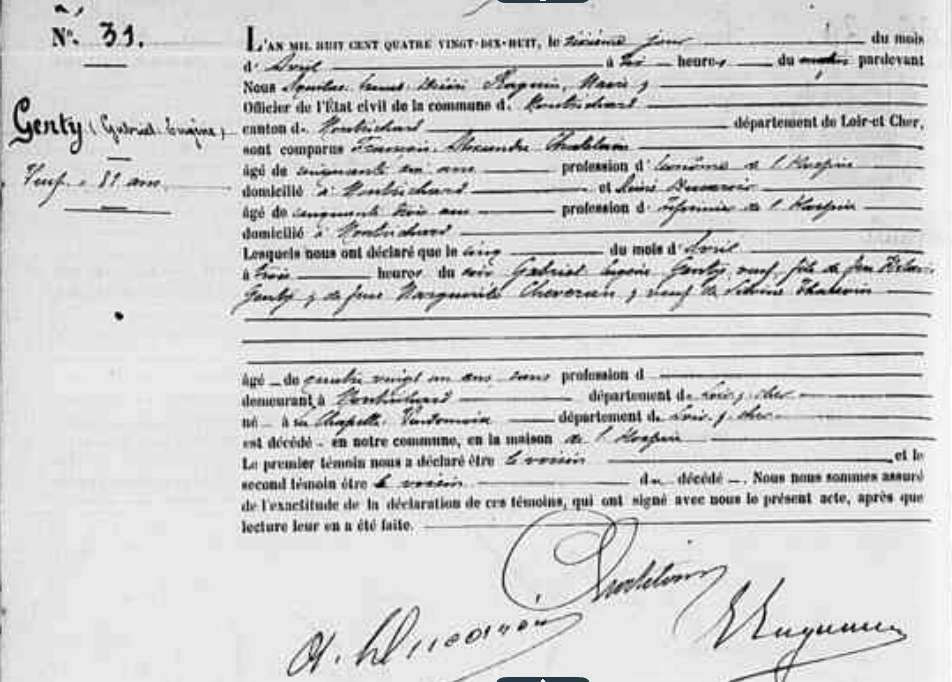 N° 31.
Genty (Gabriel Eugène)
Veuf - 81 ans
L'AN MIL HUIT CENT QUATRE VINGT-DIX-HUIT, le sixième jour du mois
d'Avril à heures du matin pardevant
Nous Henri Maire &
Officier de l'État civil de la commune de Montrichard
canton de Montrichard département de Loir-et Cher,
sont comparus François Alexandre Chatelain
âgé de cinquante six ans profession d'économe de l'Hospice
domicilié à Montrichard et
âgé de cinquante trois ans profession d'infirmier de l'Hospice
domicilié à Montrichard
Lesquels nous ont déclaré que le cinq du mois d'Avril
à trois heures du soir Gabriel Eugène Genty, veuf, fils de feu
Genty & de feue Marguerite & veuf de
âgé de quatre vingt un ans, sans profession d
demeurant à Montrichard département de Loir & cher
né à La Chapelle Vendomoise département de Loir & cher
est décédé en notre commune, en la maison de l'Hospice
Le premier témoin nous a déclaré être le voisin et le
second témoin être le voisin du décédé. Nous nous sommes assuré
de l'exactitude de la déclaration de ces témoins, qui ont signé avec nous le présent acte, après que
lecture leur en a été faite.
Chatelain